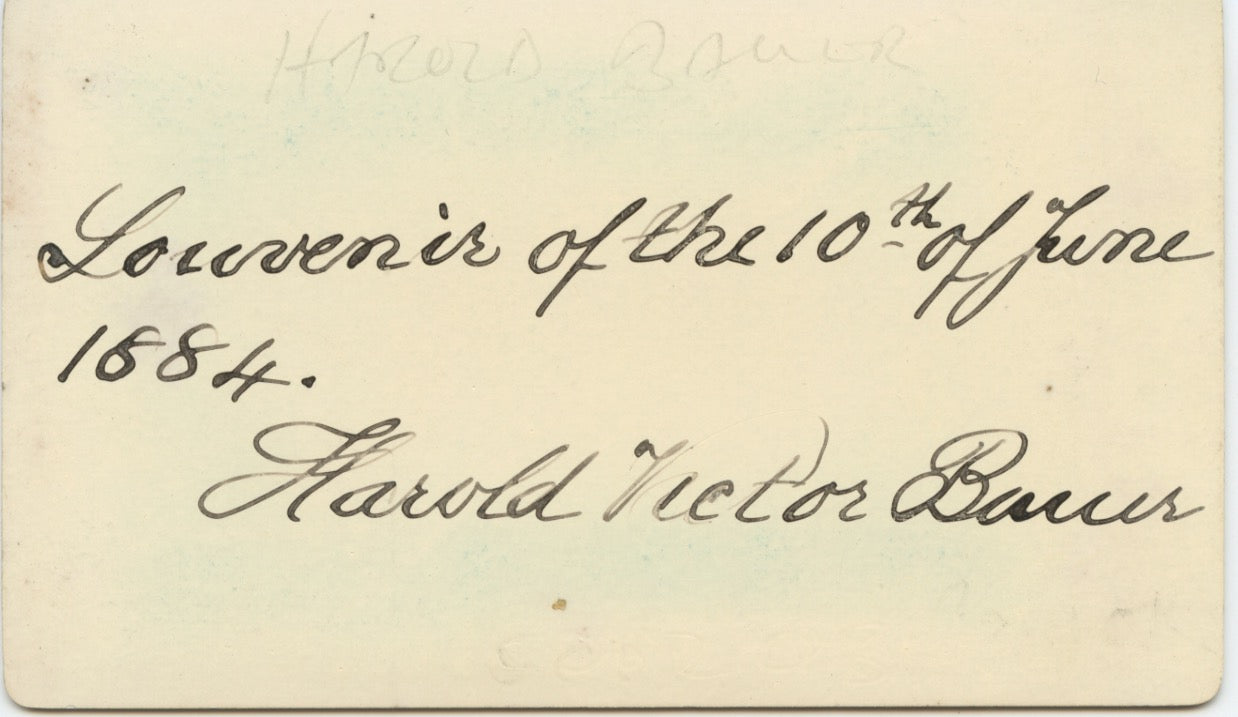 HAROLD BAUER
Souvenir of the 10th of June
1884.
Harold Victor Bauer